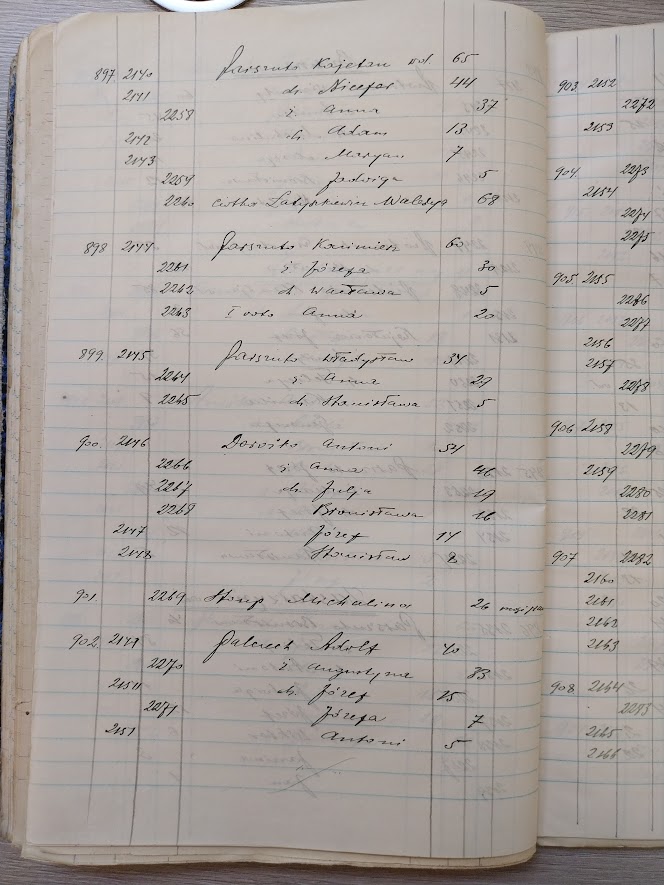 897 2140 Parszuto Kajetan wd. 65
2141 ch. Nicefor 44
2258 ż. Anna 37
2142 ch. Adam 13
2143 Maryan 7
2259 Jadwiga 5
2260 ciotka Łatyszkiewicz 68
898 2144 Parszuto Kazimierz 60
2261 ż. Józefa 30
2262 ch. Wacława 5
2263 I voto Anna 20
899. 2145 Parszuto Władysław 34
2264 ż. Anna 29
2265 ch. Stanisława 5
900. 2146 Antoni 54
2266 ż. Anna 46
2267 ch. Julja 19
2268 Bronisława 16
2147 Józef 14
2148 Stanisław 8
901. 2269 Michalina 26
902. 2149 Adolf 40
2270 ż. Augustyna 33
ch. Józef 15
2271 Józefa 7
2151 Antoni 5
903 2152
2272
2153
904. 2273
2154
2274
2275
905. 2155
2276
2277
2156
2157
2278
906. 2158
2279
2159
2280
2281
907 2282
2160
2161
2162
2163
908 2164
2283
2165
2166